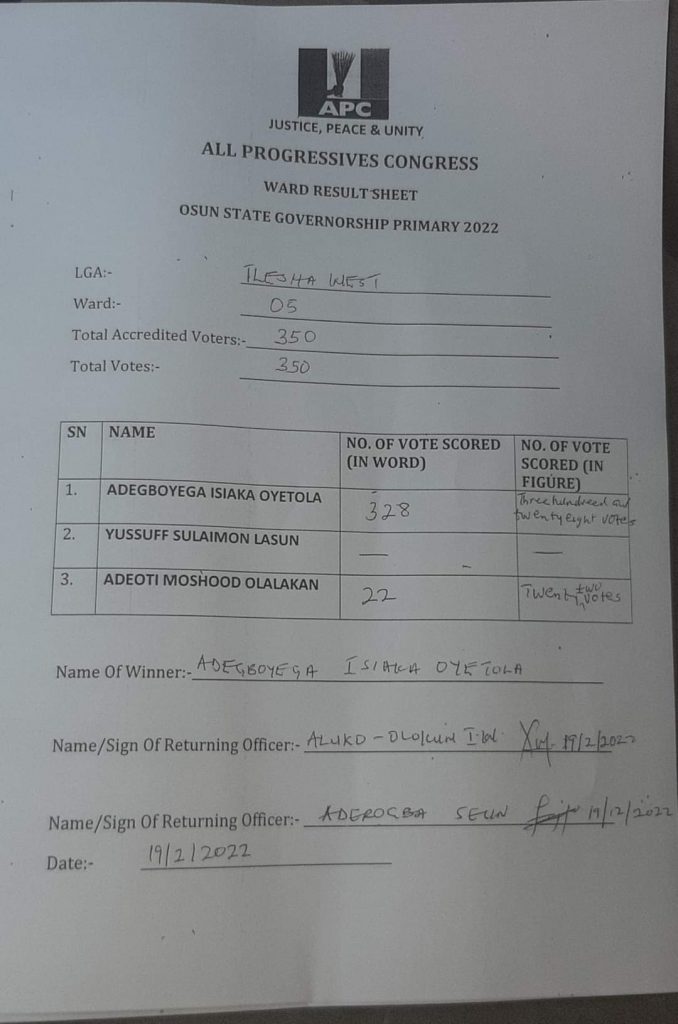 APC
JUSTICE, PEACE & UNITY
ALL PROGRESSIVES CONGRESS
WARD RESULT SHEET
OSUN STATE GOVERNORSHIP PRIMARY 2022
LGA:- ILESHA WEST
Ward:- 05
Total Accredited Voters:- 350
Total Votes:- 350
SN NAME NO. OF VOTE SCORED (IN WORD) NO. OF VOTE SCORED (IN FIGURE)
1. ADEGBOYEGA ISIAKA OYETOLA 328 Three hundreed and twenty eight votes
2. YUSSUFF SULAIMON LASUN — —
3. ADEOTI MOSHOOD OLALAKAN 22 Twenty two votes
Name Of Winner:- ADEGBOYEGA ISIAKA OYETOLA
Name/Sign Of Returning Officer:- ALUKO - OLOKUN 19/2/2022
Name/Sign Of Returning Officer:- ADEROGBA SEUN 19/12/2022
Date:- 19/2/2022